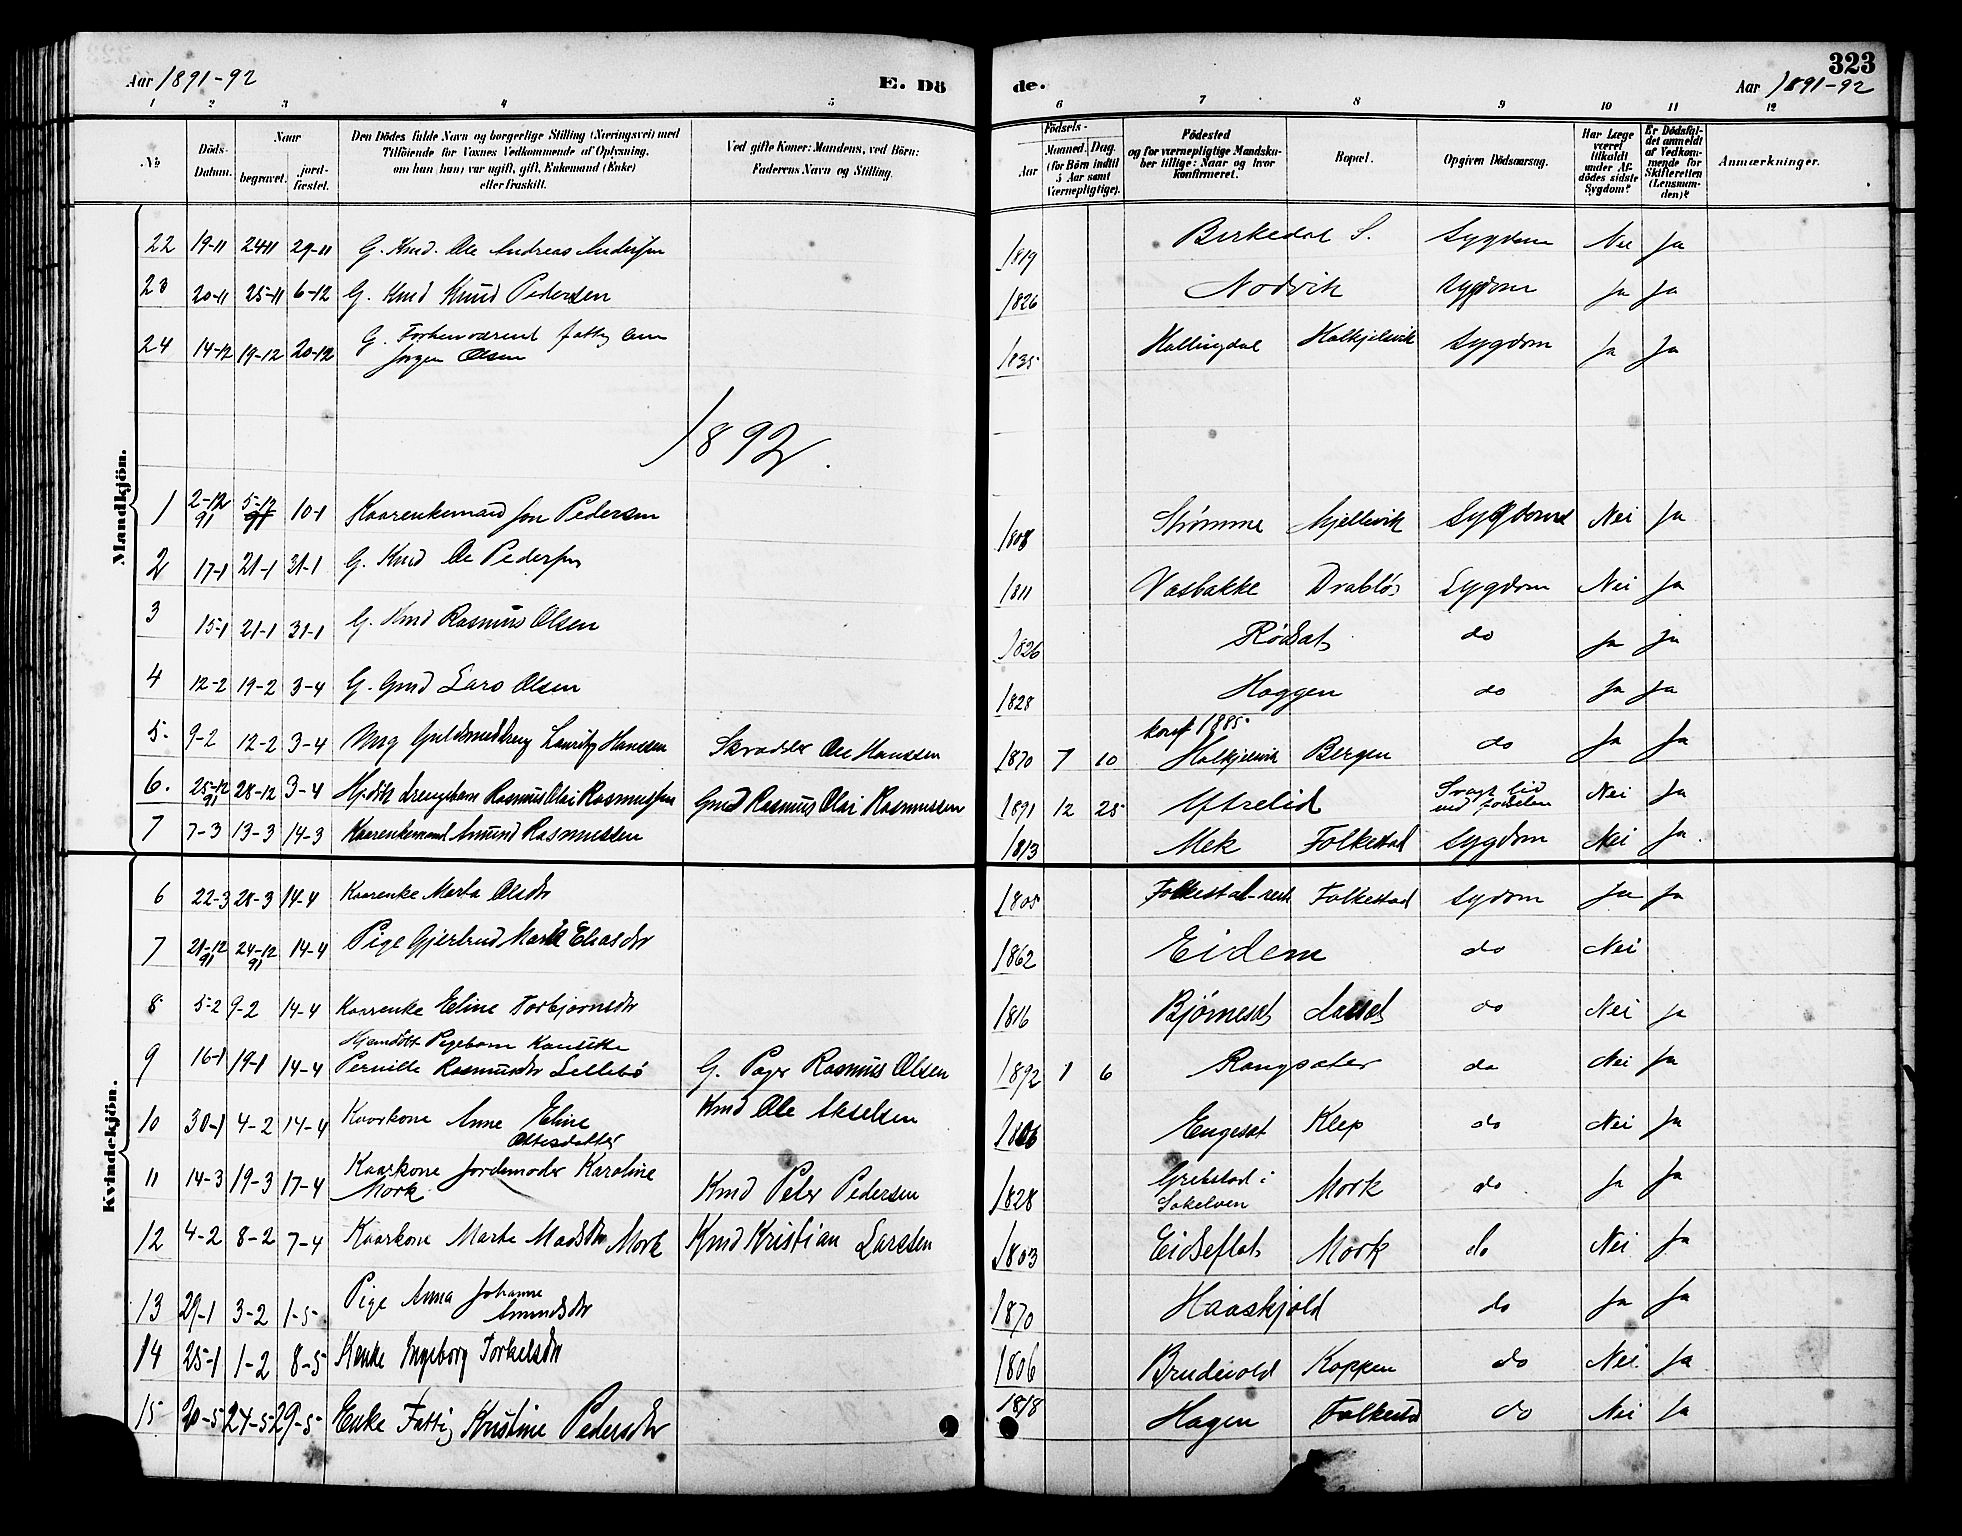 323
Aar 1891-92 E. Dö de. Aar 1891-92
1 2 3 4 5 6 7 8 9 10 11 12
No
Döds-Datum.
Naar begravet. jordfæstet.
Den Dödes fulde Navn og borgerlige Stilling (Næringsvei) med
Tilföiende for Voxnes Vedkommende af Oplysning,
om han (hun) var ugift, gift, Enkemand (Enke)
eller fraskilt.
Ved gifte Koner: Mandens, ved Börn:
Faderens Navn og Stilling.
Födsels-
Aar Maaned. Dag. (for Börn indtil 5 Aar samt Værnepligtige).
Födested
og for værnepligtige Mandsku-
ber tillige: Naar og hvor
konfirmeret.
Bopæl.
Opgiven Dödsaarsag.
Har Læge været tilkaldt under Afdödes sidste Sygdom?
Er Dödsfaldet anmeldt af Vedkommende for Skifteretten (Lensmanden)?
Anmærkninger.
Mandkjön.
22 19-11 24-11 29-11 G. Kmd. Ole Andreas Andersen 1819 Birkedal S. Sygdom Nei Ja
23 20-11 25-11 6-12 G. Kmd Knud Pedersen 1826 Nodvik Sygdom Ja Ja
24 14-12 19-12 20-12 G. Forhenværend fattig
Jørgen Olsen 1835 Hallingdal Halkjelsvik Sygdom Ja Ja
1892.
1 2-12 91 5-12 91 10-1 Kaarenkemand Jon Pedersen 1808 Strømme Mjellevik Sygdomd Nei Ja
2 17-1 21-1 31-1 G. Kmd Ole Pedersen 1811 Vasbakke Drabløs Sygdom Nei Ja
3 15-1 21-1 31-1 G. Kmd Rasmus Olsen 1826 Rødsat do Ja Ja
4 12-2 19-2 3-4 G. Gmd Lars Olsen 1828 Haggen do Ja Ja
5 9-2 12-2 3-4 Ung Guldsmedsveng Lauritz Hanssen Skradder Ole Hanssen 1870 7 10 konf 1885
Halkjelsvik Bergen do Ja Ja
6. 25-12 91 28-12 3-4 Hj.døbt Drengebarn Rasmus Olai Rasmussen Gmd Rasmus Olai Rasmussen 1891 12 25 Yttrelid Svagt lid
ved fødselen Nei Ja
7 7-3 13-3 14-3 Kaarenkemand Amund Rasmussen 1813 Mek Folkestad Sygdom Nei Ja.
Kvindekjön.
6 22-3 28-3 14-4 Kaarenke Marta Olsdtr 1805 Folkestad Folkestad Sydom Ja Ja
7 21-12 91 24-12 91 14-4 Pige Gjertrud Marta Eliasdtr 1862 Eidem do Nei
8 5-2 9-2 14-4 Kaarenke Eline Torbjørnsdtr 1816 Bjørnesat do Nei Ja
9 16-1 19-1 14-4 Hjemdøbt Pigebarn
Pernille Rasmusdtr G. Pager Rasmus Olsen 1892 1 6 Rangsater do Nei Ja
10 30-1 4-2 14-4 Kaarkone Anne Eline
Ottesdatter Kmd Ole Akselsen Engeset Klep do Nei Ja
11 14-3 19-3 17-4 Kaarkone Jordemoder Karoline
Mork Kmd Peter Pedersen 1828 Gribstad i
Søkelven Mork do Ja Ja
12 4-2 8-2 7-4 Kaarkone Marte Madsdtr Mork Kmd Kristian Larssen 1803 Eidseflat Mork do Nei Ja
13 29-1 3-2 1-5 Pige Anna Johanne
Amundsdtr 1870 Haaskjold do Ja Ja
14 25-1 1-2 8-5 Kenke Ingeborg Torkelsdtr 1806 Brudevold Koppen do Nei Ja
15 20-5 24-5 29-5 Enke Fattig Kristine Pedersdtr 1818 Hagen Folkestad do Nei Ja